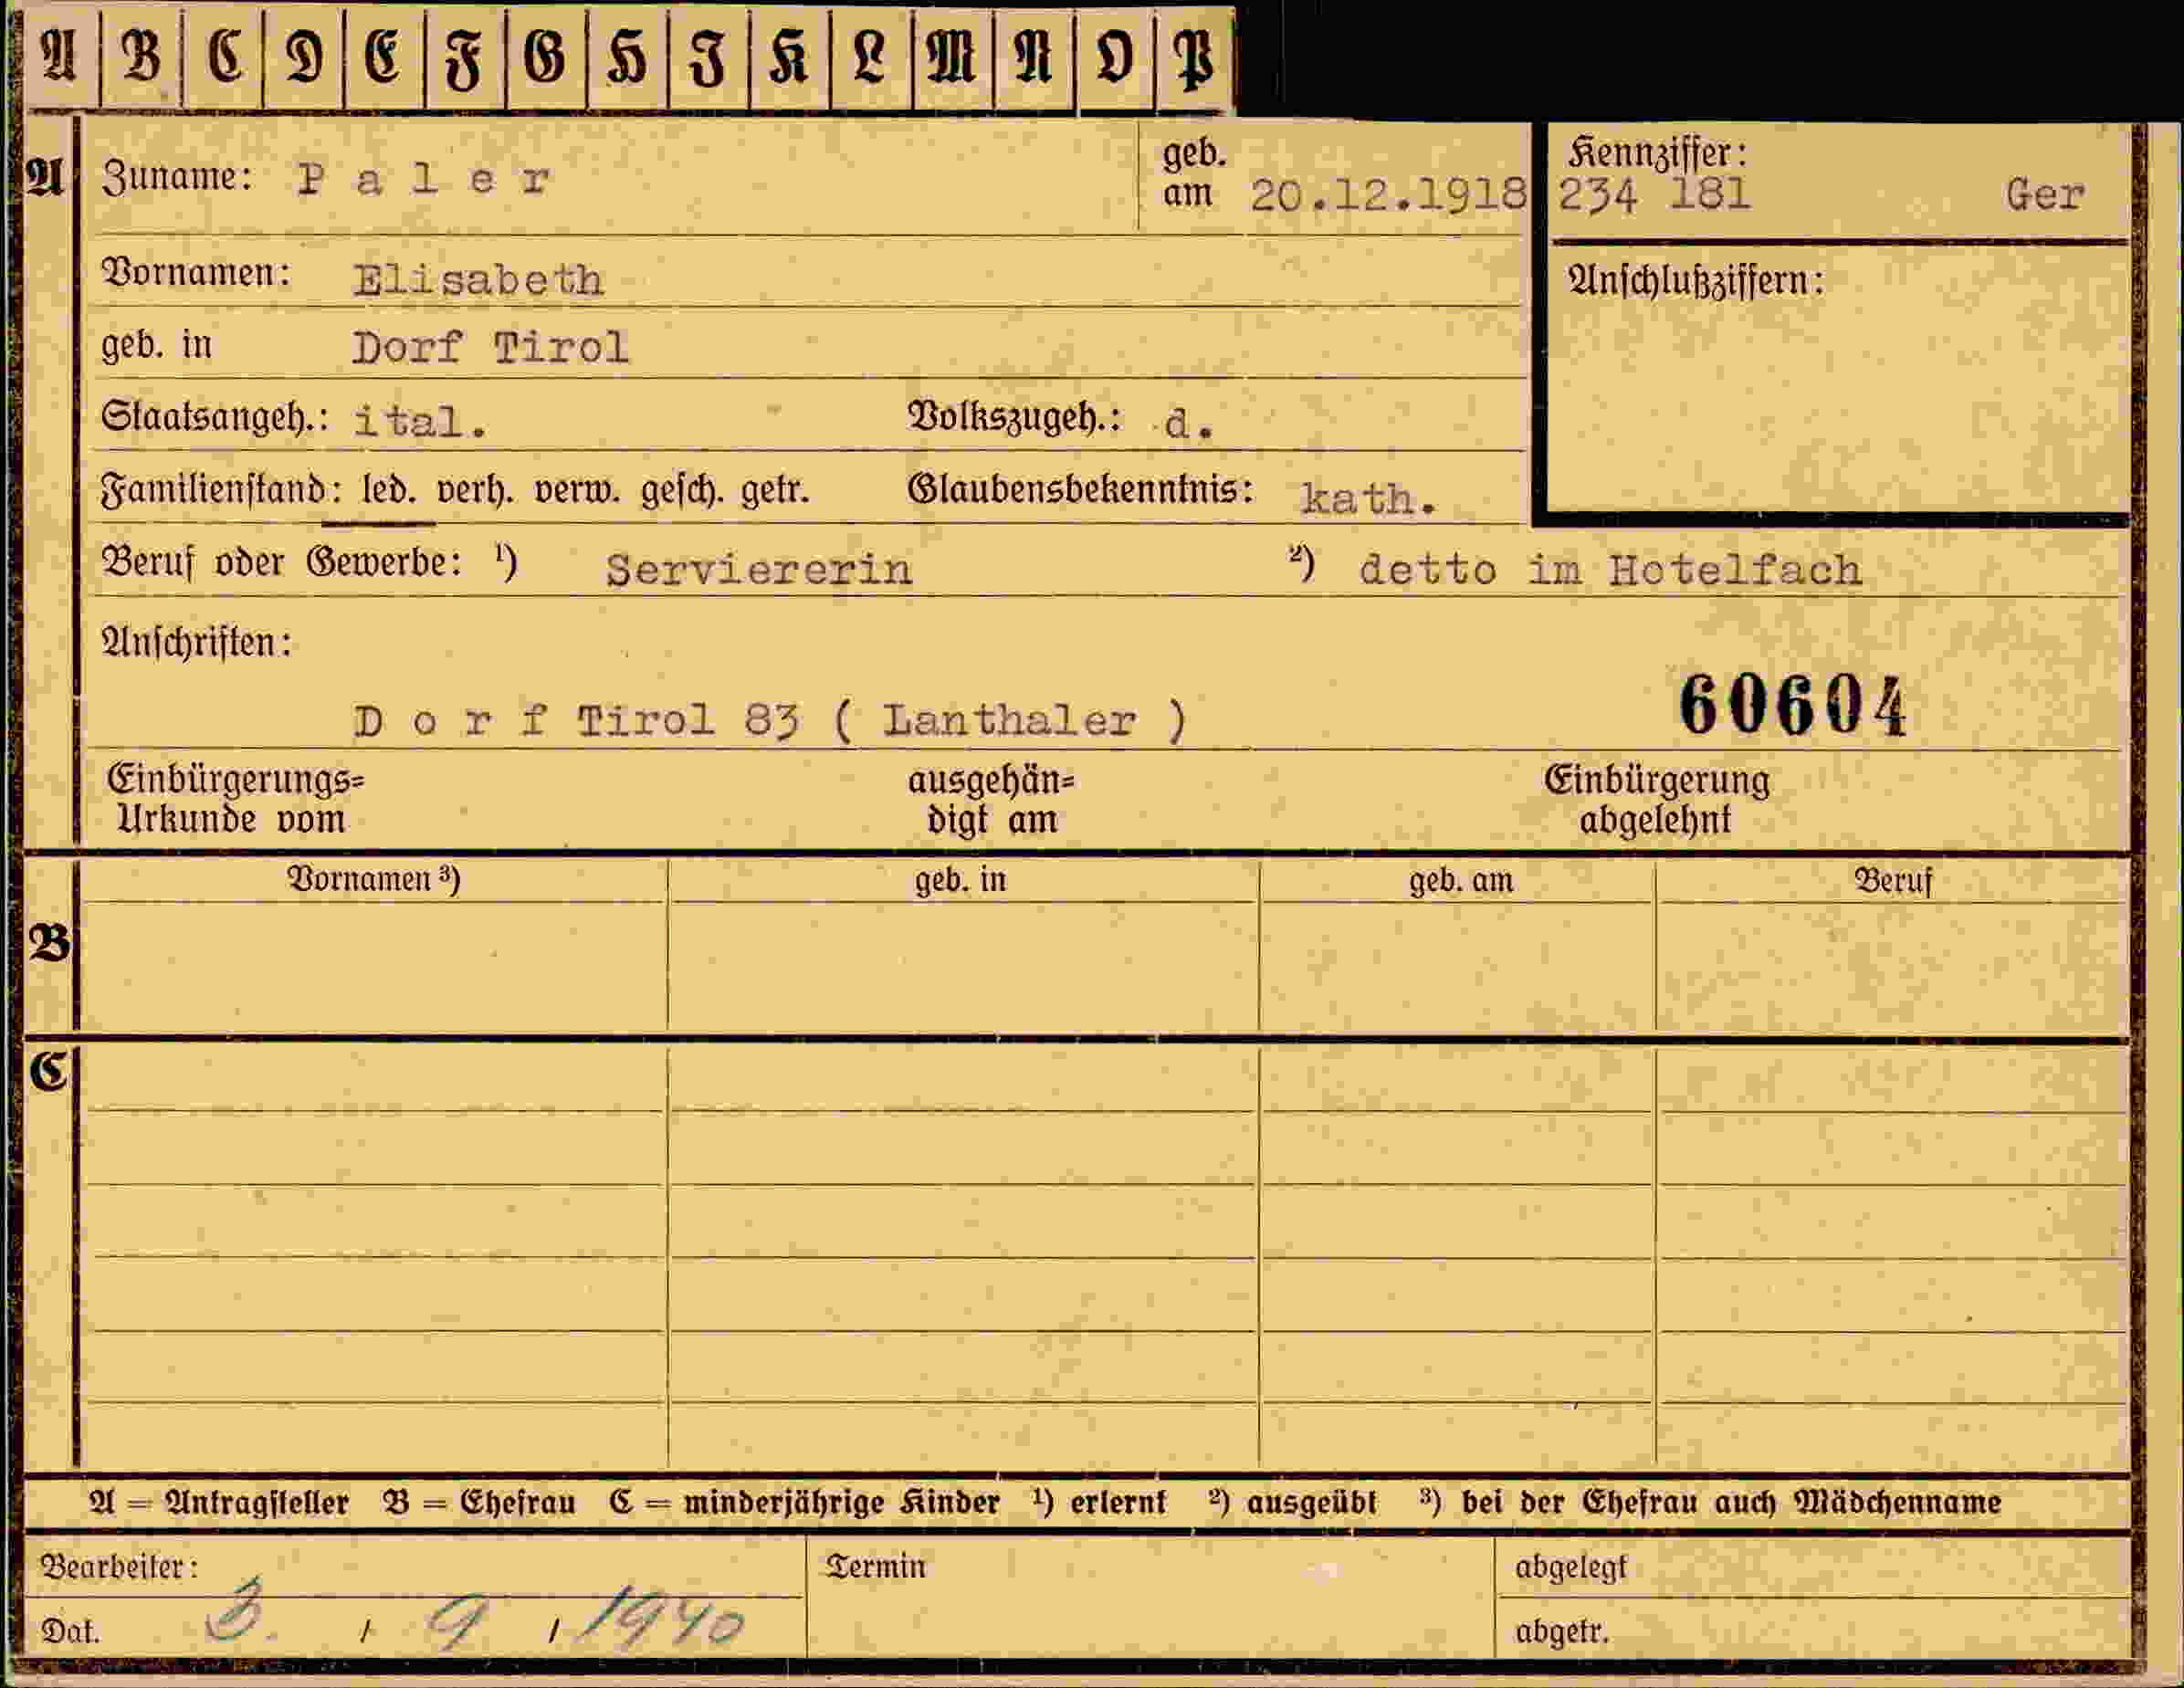 A B C D E F G H I K L M N O P
A Zuname: P a l e r geb. am 20.12.1918 Kennziffer: 234 181 Ger
Vornamen: Elisabeth Anschlußziffern:
geb. in Dorf Tirol
Staatsangeh.: ital. Volkszugeh.: d.
Familienstand: led. verh. verw. gesch. getr. Glaubensbekenntnis: kath.
Beruf oder Gewerbe: ¹) Serviererin ²) detto im Hotelfach
Anschriften:
60604
D o r f Tirol 83 ( Lanthaler )
Einbürgerungs= ausgehän= Einbürgerung
Urkunde vom digt am abgelehnt
Vornamen ³) geb. in geb. am Beruf
B
C
A = Antragsteller B = Ehefrau C = minderjährige Kinder ¹) erlernt ²) ausgeübt ³) bei der Ehefrau auch Mädchenname
Bearbeiter: Termin abgelegt
Dat. 3. / 9 / 1940 abgetr.